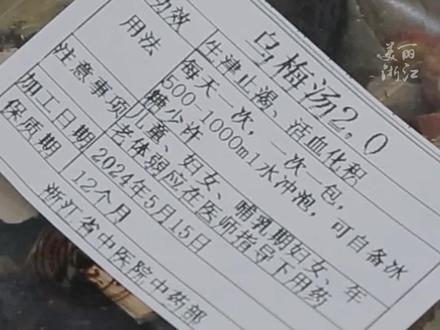 美丽
浙江
乌梅汤2.0
功效
生津止渴、活血化积
用法
每天一次，一次一包，
500-1000ml水冲泡，可自备冰
糖少许
注意事项
儿童、妇女、哺乳期妇女、年
老体弱应在医师指导下用药
加工日期
2024年5月15日
保质期
12个月
浙江省中医院中药部